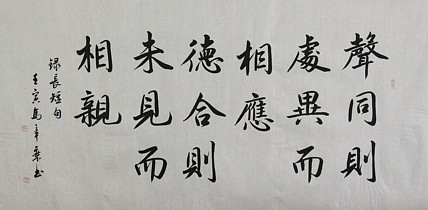 聲同則
處異而
相應
德合則
未見而
相親
錄長短句
壬寅馬年乘书